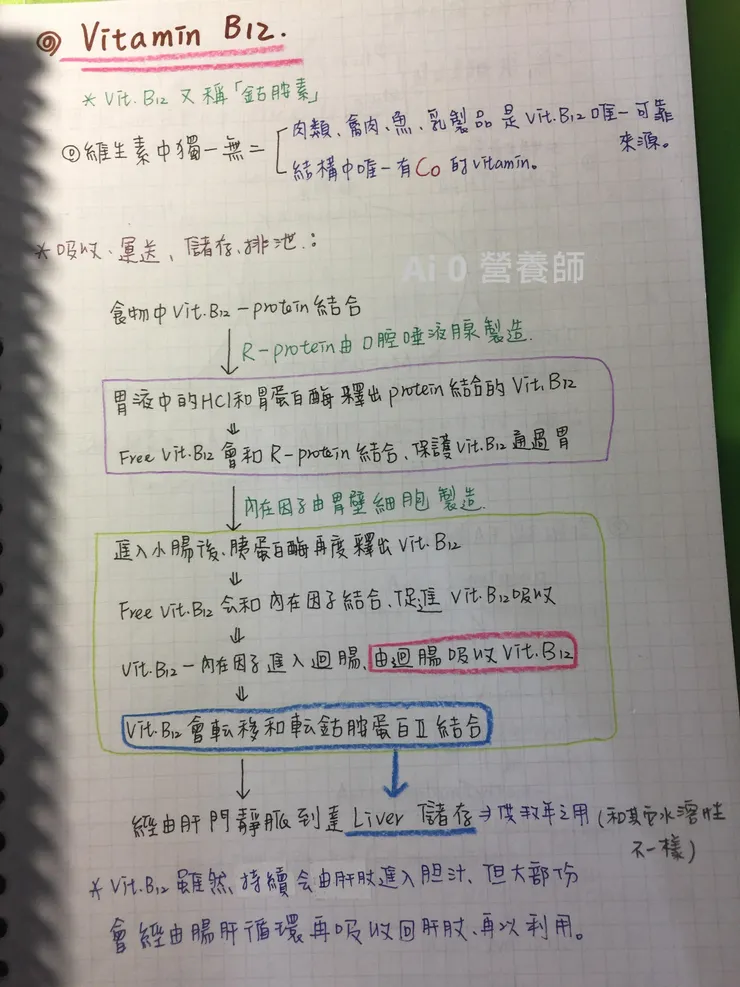 ◎ Vitamin B12.
* Vit.B12 又稱「鈷胺素」
◎維生素中獨一無二
肉類、禽肉、魚、乳製品是Vit.B12唯一可靠
來源。
結構中唯一有Co的vitamin。
*吸收、運送、儲存、排泄:
Ai 0 營養師
食物中Vit.B12-protein結合
↓ R-protein由口腔唾液腺製造.
胃液中的HCl和胃蛋白酶釋出protein結合的Vit.B12
⇓
Free Vit.B12會和R-protein結合、保護Vit.B12通過胃
↓ 內在因子由胃壁細胞製造.
進入小腸後、胰蛋白酶再度釋出Vit.B12
⇓
Free Vit.B12会和內在因子結合、促進Vit.B12吸收
⇓
Vit.B12-內在因子進入迴腸、由迴腸吸收Vit.B12
⇓
Vit.B12會転移和転鈷胺蛋白Ⅱ結合
↓
經由肝門靜脈到達Liver儲存⇒供数年之用(和其它水溶性
不一樣)
*Vit.B12雖然、持續会由肝肚進入胆汁、但大部份
會經由腸肝循環再吸收回肝肚、再以利用。